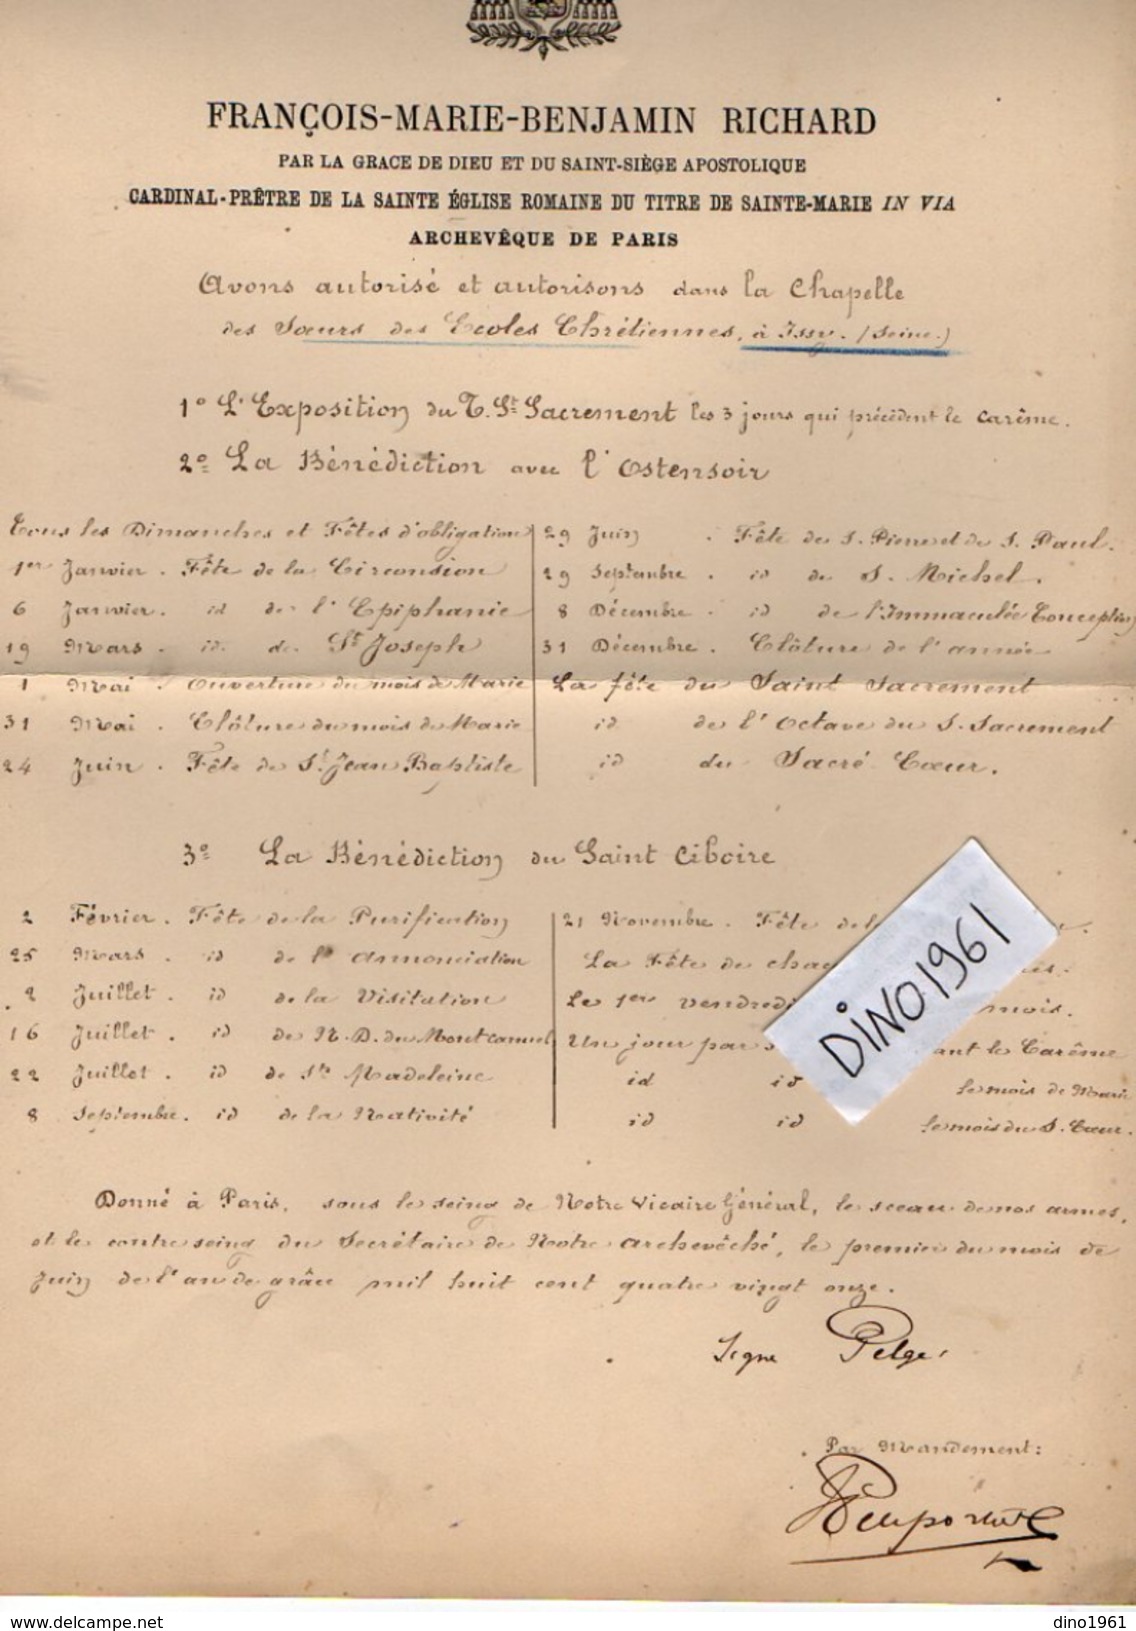 FRANÇOIS-MARIE-BENJAMIN RICHARD
PAR LA GRACE DE DIEU ET DU SAINT-SIÈGE APOSTOLIQUE
CARDINAL-PRÊTRE DE LA SAINTE ÉGLISE ROMAINE DU TITRE DE SAINTE-MARIE IN VIA
ARCHEVÊQUE DE PARIS
Avons autorisé et autorisons dans la Chapelle
des Sœurs des Ecoles Chrétiennes, à Issy. (Seine.)
1º L'Exposition du T. St Sacrement les 3 jours qui précèdent le carême.
2º La Bénédiction avec l'Ostensoir
Tous les Dimanches et Fêtes d'obligation
1er Janvier. Fête de la Circonsion
6 Janvier. id de l'Epiphanie
19 Mars. id. de St Joseph
1 Mai. Ouverture du mois de Marie
31 Mai. Clôture du mois de Marie
24 Juin. Fête de St Jean Baptiste
29 Juin. Fête de S. Pierre et de S. Paul.
29 Septembre. id de S. Michel.
8 Décembre. id de l'Immaculée Conception
31 Décembre. Clôture de l'année
La fête du Saint Sacrement
id de l'Octave du S. Sacrement
id du Sacré Cœur.
3º La Bénédiction du Saint Ciboire
2 Février. Fête de la Purification
25 Mars. id de l'annonciation
2 Juillet. id de la Visitation
16 Juillet. id de N. D. du Mont carmel
22 Juillet. id de Ste Madeleine
8 Septembre. id de la Nativité
21 Novembre. Fête de
La Fête de
Le 1er vendredi mois.
Un jour par le Carême
id id le mois de Marie
id id le mois du S. Cœur.
DINO1961
Donné à Paris, sous le seing de Notre Vicaire Général, le sceau de nos armes,
et le contre seing du Secrétaire de Notre archevêché, le premier du mois de
Juin de l'an de grâce mil huit cent quatre vingt onze.
Signé Pelgé.
Par Mandement:
www.delcampe.net
dino1961